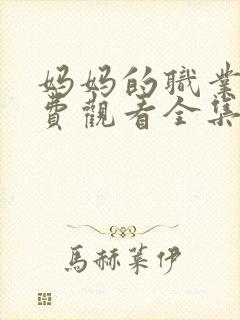 妈妈的職業
費觀看全集
馬赫萊伊